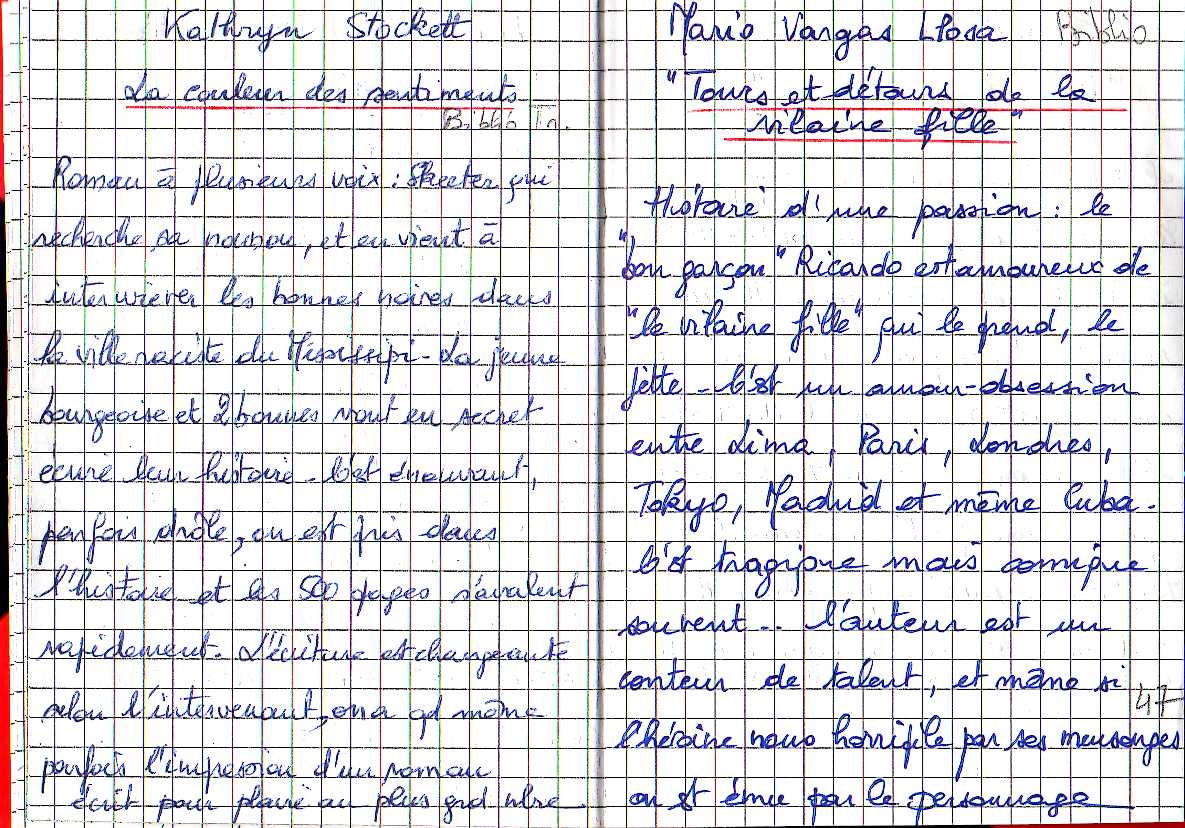 Kathryn Stockett
La couleur des sentiments
Biblio Tn.
Roman à plusieurs voix : Skeeter qui
recherche sa nounou, et en vient à
interwiever les bonnes noires dans
la ville raciste du Mississipi - La jeune
bourgeoise et 2 bonnes vont en secret
écrire leur histoire - C'est émouvant,
parfois drôle, on est pris dans
l'histoire et les 500 pages s'avalent
rapidement. L'écriture est changeante
selon l'intervenant, on a qd même
parfois l'impression d'un roman
écrit pour plaire au plus grd nbre
Mario Vargas Llosa Biblio
"Tours et détours de la
vilaine fille"
Histoire d'une passion : le
"bon garçon" Ricardo est amoureux de
"la vilaine fille" qui le prend, le
jette - C'est un amour-obsession
entre Lima, Paris, Londres,
Tokyo, Madrid et même Cuba.
C'est tragique mais comique
souvent .. L'auteur est un
conteur de talent, et même si
l'héroïne nous horrifile par ses mensonges
on est émue par le personnage
47